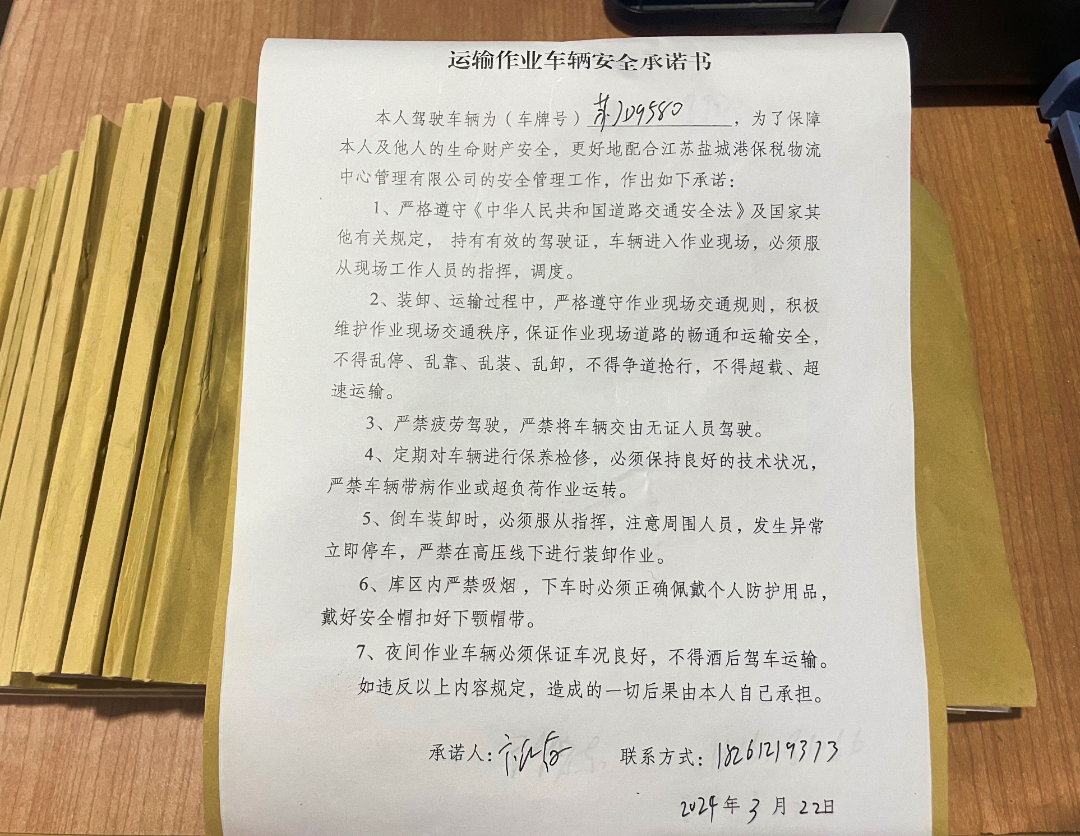 运输作业车辆安全承诺书
本人驾驶车辆为（车牌号）苏JD9580，为了保障
本人及他人的生命财产安全，更好地配合江苏盐城港保税物流
中心管理有限公司的安全管理工作，作出如下承诺：
1、严格遵守《中华人民共和国道路交通安全法》及国家其
他有关规定， 持有有效的驾驶证，车辆进入作业现场，必须服
从现场工作人员的指挥，调度。
2、装卸、运输过程中，严格遵守作业现场交通规则，积极
维护作业现场交通秩序，保证作业现场道路的畅通和运输安全，
不得乱停、乱靠、乱装、乱卸，不得争道抢行，不得超载、超
速运输。
3、严禁疲劳驾驶，严禁将车辆交由无证人员驾驶。
4、定期对车辆进行保养检修，必须保持良好的技术状况，
严禁车辆带病作业或超负荷作业运转。
5、倒车装卸时，必须服从指挥，注意周围人员，发生异常
立即停车，严禁在高压线下进行装卸作业。
6、库区内严禁吸烟 ，下车时必须正确佩戴个人防护用品，
戴好安全帽扣好下颚帽带。
7、夜间作业车辆必须保证车况良好，不得酒后驾车运输。
如违反以上内容规定，造成的一切后果由本人自己承担。
承诺人： 联系方式：18261219373
2024年3月22日